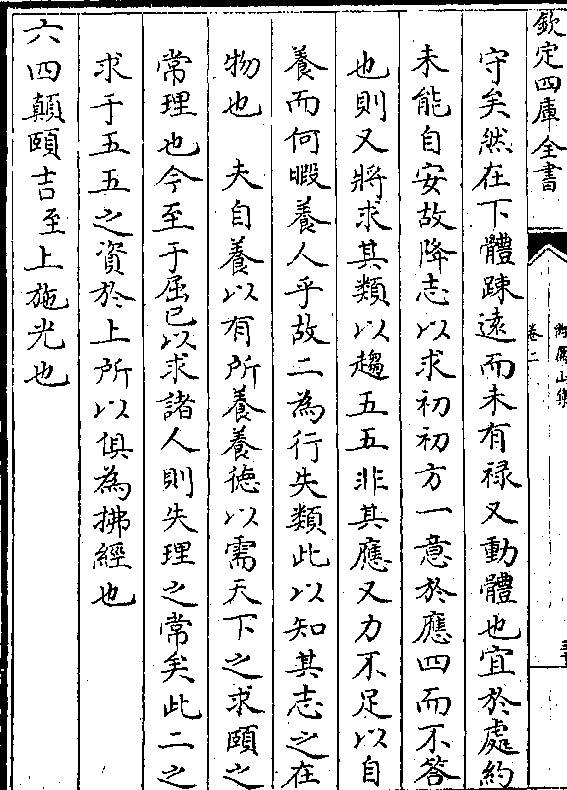 欽定四庫全書
卷二
守矣然在下體踈遠而未有禄又動體也宜於處約
未能自安故降志以求初初方一意於應四而不答
也則又將求其類以趨五五非其應又力不足以自
養而何暇養人乎故二為行失類此以知其志之在
物也　夫自養以有所養養德以需天下之求頤之
常理也今至于屈已以求諸人則失理之常矣此二之
求于五五之資於上所以俱為拂經也
六四顛頤吉至上施光也